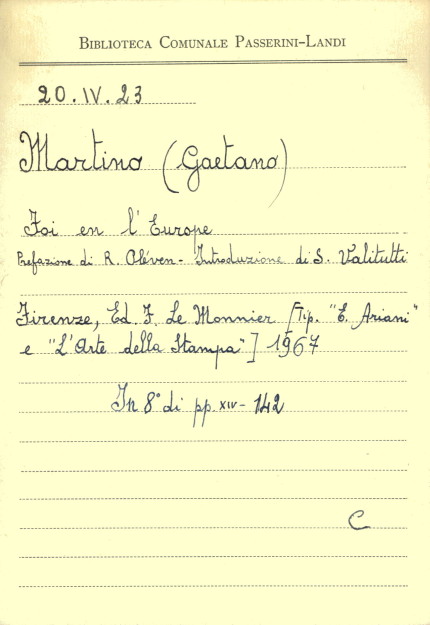 BIBLIOTECA COMUNALE PASSERINI-LANDI
20.IV.23
Martino (Gaetano)
Foi en l'Europe
Prefazione di R. Cléven - Introduzione di S. Valitutti
Firenze, Ed. F. Le Monnier [Tip. "E. Ariani"
e "L'Arte della Stampa"] 1967
In 8° di pp. XIV - 142
C